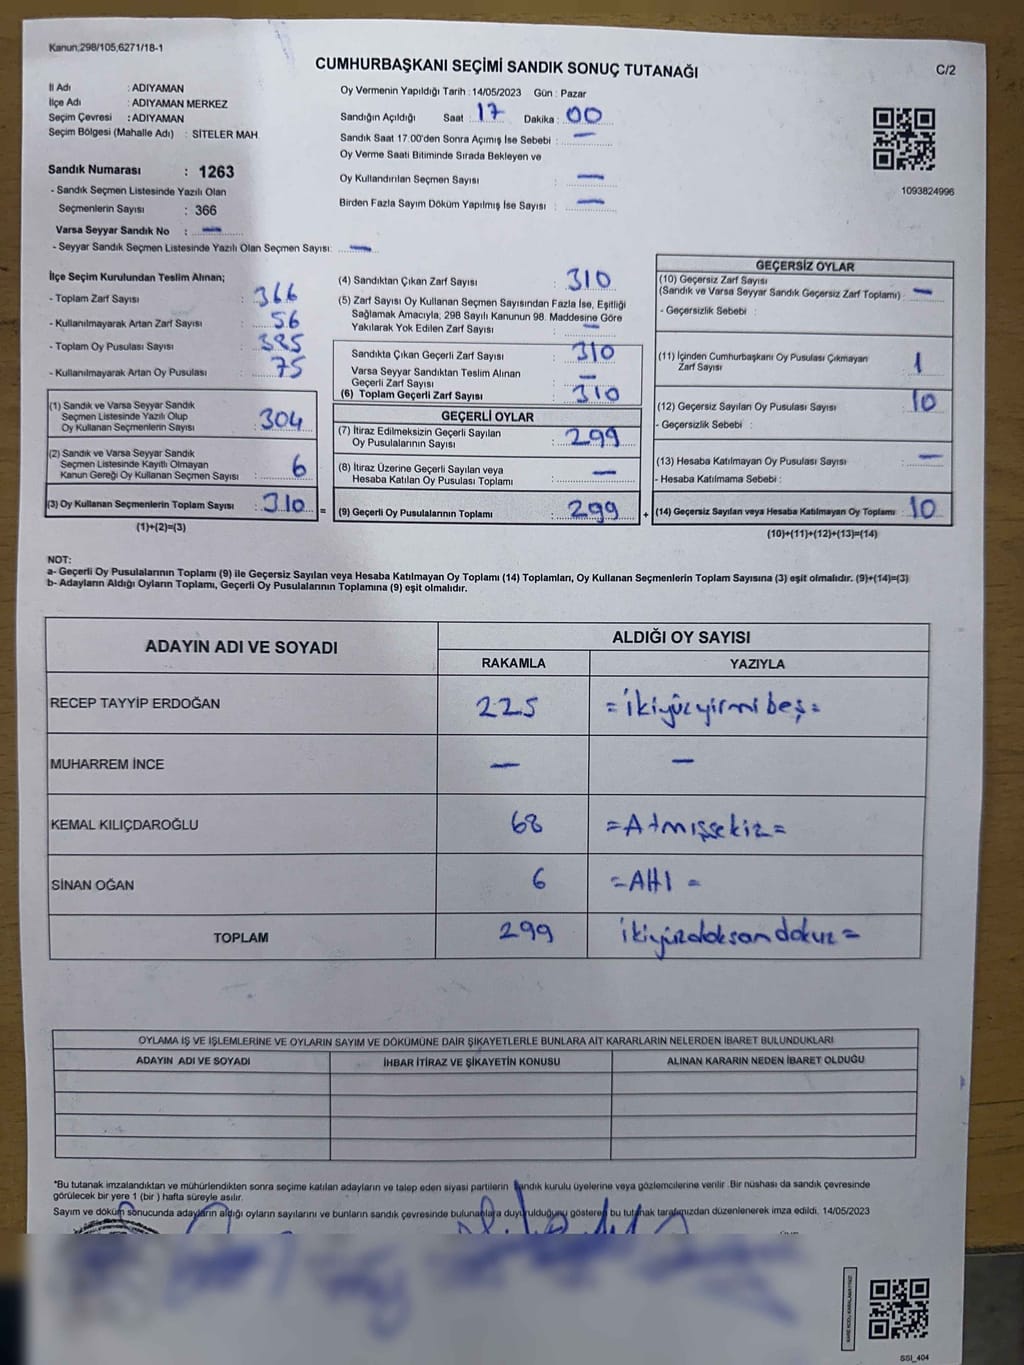 Kanun;298/105,6271/18-1
CUMHURBAŞKANI SEÇİMİ SANDIK SONUÇ TUTANAĞI
C/2
İl Adı : ADIYAMAN
İlçe Adı : ADIYAMAN MERKEZ
Seçim Çevresi : ADIYAMAN
Seçim Bölgesi (Mahalle Adı) : SİTELER MAH.
Oy Vermenin Yapıldığı Tarih : 14/05/2023 Gün : Pazar
Sandığın Açıldığı Saat : 17 Dakika : 00
Sandık Saat 17:00'den Sonra Açımış İse Sebebi : —
Oy Verme Saati Bitiminde Sırada Bekleyen ve
Oy Kullandırılan Seçmen Sayısı : —
Birden Fazla Sayım Döküm Yapılmış İse Sayısı : —
1093824996
Sandık Numarası : 1263
- Sandık Seçmen Listesinde Yazılı Olan
Seçmenlerin Sayısı : 366
Varsa Seyyar Sandık No : —
- Seyyar Sandık Seçmen Listesinde Yazılı Olan Seçmen Sayısı: —
İlçe Seçim Kurulundan Teslim Alınan;
- Toplam Zarf Sayısı : 366
- Kullanılmayarak Artan Zarf Sayısı : 56
- Toplam Oy Pusulası Sayısı : 385
- Kullanılmayarak Artan Oy Pusulası : 75
(1) Sandık ve Varsa Seyyar Sandık
Seçmen Listesinde Yazılı Olup
Oy Kullanan Seçmenlerin Sayısı : 304
(2) Sandık ve Varsa Seyyar Sandık
Seçmen Listesinde Kayıtlı Olmayan
Kanun Gereği Oy Kullanan Seçmen Sayısı : 6
(3) Oy Kullanan Seçmenlerin Toplam Sayısı : 310
(1)+(2)=(3)
(4) Sandıktan Çıkan Zarf Sayısı : 310
(5) Zarf Sayısı Oy Kullanan Seçmen Sayısından Fazla İse, Eşitliği
Sağlamak Amacıyla; 298 Sayılı Kanunun 98. Maddesine Göre
Yakılarak Yok Edilen Zarf Sayısı : —
Sandıkta Çıkan Geçerli Zarf Sayısı : 310
Varsa Seyyar Sandıktan Teslim Alınan
Geçerli Zarf Sayısı : —
(6) Toplam Geçerli Zarf Sayısı : 310
GEÇERLİ OYLAR
(7) İtiraz Edilmeksizin Geçerli Sayılan
Oy Pusulalarının Sayısı : 299
(8) İtiraz Üzerine Geçerli Sayılan veya
Hesaba Katılan Oy Pusulası Toplamı : —
= (9) Geçerli Oy Pusulalarının Toplamı : 299
GEÇERSİZ OYLAR
(10) Geçersiz Zarf Sayısı
(Sandık ve Varsa Seyyar Sandık Geçersiz Zarf Toplamı) : —
- Geçersizlik Sebebi :
(11) İçinden Cumhurbaşkanı Oy Pusulası Çıkmayan
Zarf Sayısı : 1
(12) Geçersiz Sayılan Oy Pusulası Sayısı : 10
- Geçersizlik Sebebi :
(13) Hesaba Katılmayan Oy Pusulası Sayısı : —
- Hesaba Katılmama Sebebi :
+ (14) Geçersiz Sayılan veya Hesaba Katılmayan Oy Toplamı : 10
(10)+(11)+(12)+(13)=(14)
NOT:
a- Geçerli Oy Pusulalarının Toplamı (9) ile Geçersiz Sayılan veya Hesaba Katılmayan Oy Toplamı (14) Toplamları, Oy Kullanan Seçmenlerin Toplam Sayısına (3) eşit olmalıdır. (9)+(14)=(3)
b- Adayların Aldığı Oyların Toplamı, Geçerli Oy Pusulalarının Toplamına (9) eşit olmalıdır.
ADAYIN ADI VE SOYADI ALDIĞI OY SAYISI
RAKAMLA YAZIYLA
RECEP TAYYİP ERDOĞAN 225 = ikiyüzyirmibeş =
MUHARREM İNCE — —
KEMAL KILIÇDAROĞLU 68 = Atmışsekiz =
SİNAN OĞAN 6 = Altı =
TOPLAM 299 ikiyüzdoksandokuz =
OYLAMA İŞ VE İŞLEMLERİNE VE OYLARIN SAYIM VE DÖKÜMÜNE DAİR ŞİKAYETLERLE BUNLARA AİT KARARLARIN NELERDEN İBARET BULUNDUKLARI
ADAYIN ADI VE SOYADI İHBAR İTİRAZ VE ŞİKAYETİN KONUSU ALINAN KARARIN NEDEN İBARET OLDUĞU
*Bu tutanak imzalandıktan ve mühürlendikten sonra seçime katılan adayların ve talep eden siyasi partilerin sandık kurulu üyelerine veya gözlemcilerine verilir. Bir nüshası da sandık çevresinde
görülecek bir yere 1 (bir ) hafta süreyle asılır.
Sayım ve döküm sonucunda adayların aldığı oyların sayılarını ve bunların sandık çevresinde bulunanlara duyurulduğunu gösteren bu tutanak tarafımızdan düzenlenerek imza edildi. 14/05/2023
SSI_404